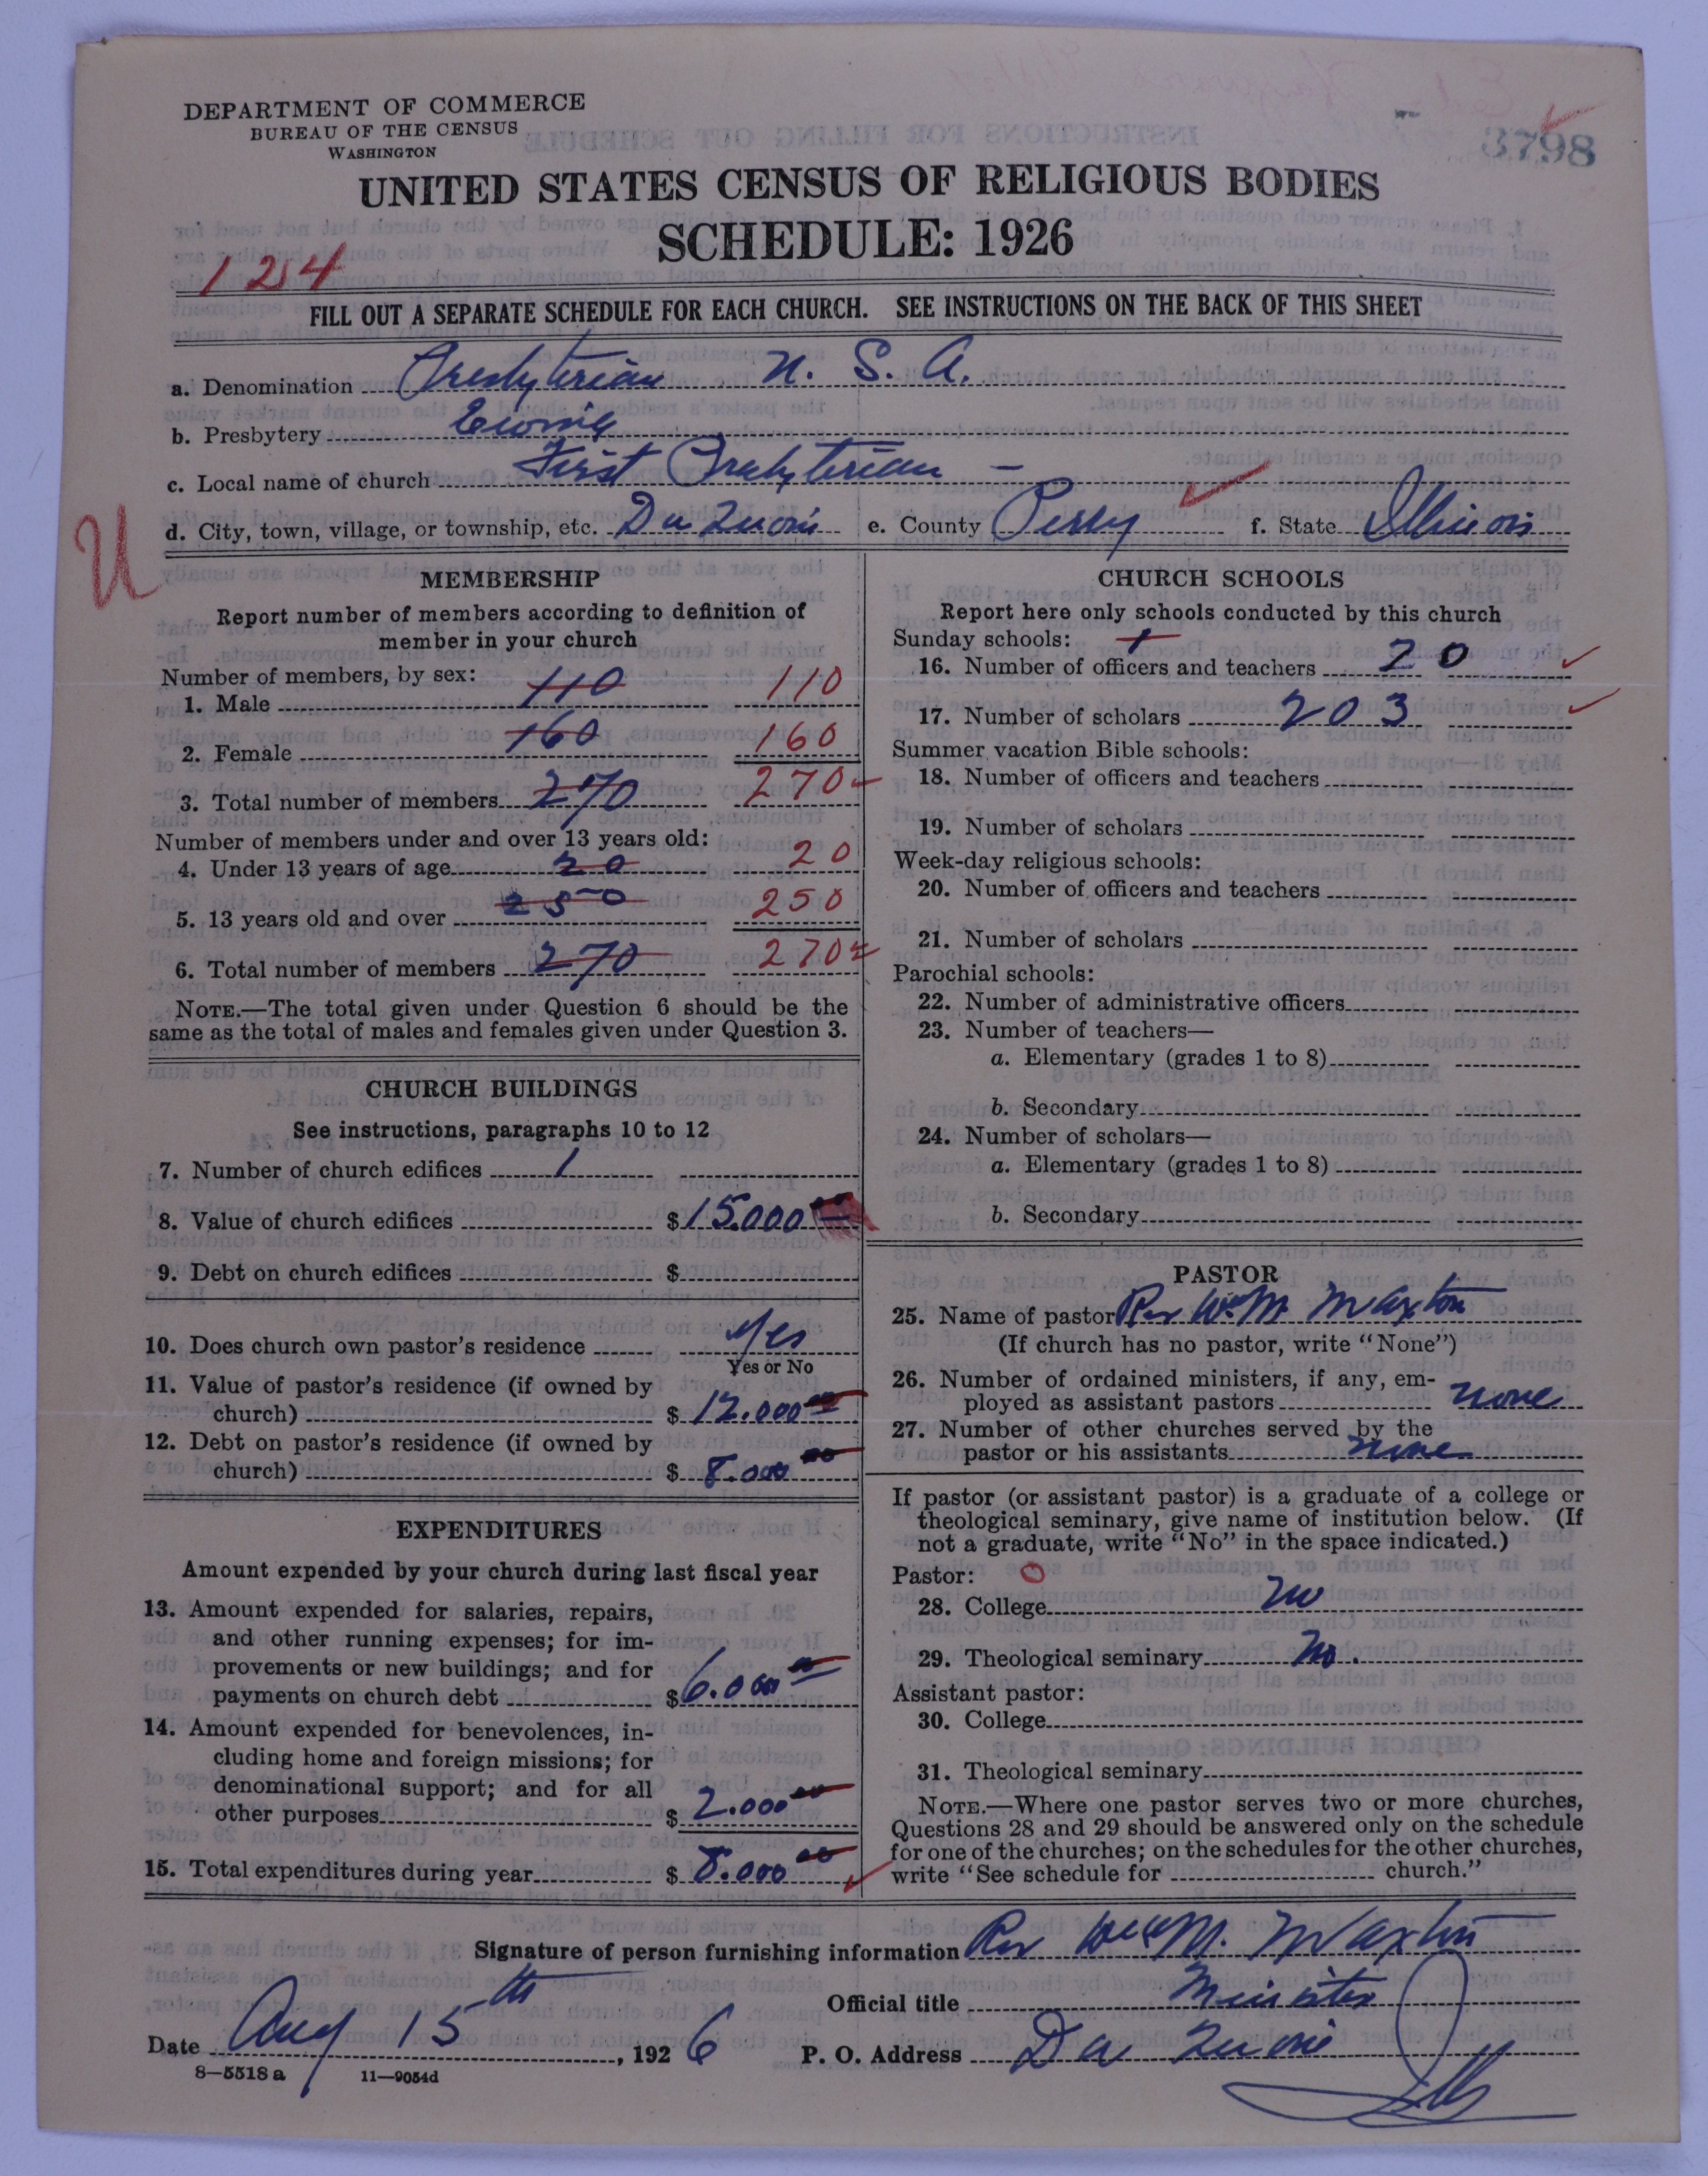 DEPARTMENT OF COMMERCE
BUREAU OF THE CENSUS
WASHINGTON
3798
UNITED STATES CENSUS OF RELIGIOUS BODIES
SCHEDULE: 1926
124
FILL OUT A SEPARATE SCHEDULE FOR EACH CHURCH. SEE INSTRUCTIONS ON THE BACK OF THIS SHEET
a. Denomination Presbyterian U. S. A.
b. Presbytery Ewing
c. Local name of church First Presbyterian –
d. City, town, village, or township, etc. Du Quoin e. County Perry f. State Illinois
U
MEMBERSHIP
Report number of members according to definition of
member in your church
Number of members, by sex:
1. Male 110 110
2. Female 160 160
3. Total number of members 270 270
Number of members under and over 13 years old:
4. Under 13 years of age 20 20
5. 13 years old and over 250 250
6. Total number of members 270 270
NOTE.—The total given under Question 6 should be the
same as the total of males and females given under Question 3.
CHURCH BUILDINGS
See instructions, paragraphs 10 to 12
7. Number of church edifices 1
8. Value of church edifices $15.000 00
9. Debt on church edifices $
10. Does church own pastor's residence Yes
Yes or No
11. Value of pastor's residence (if owned by
church) $ 12.000 00
12. Debt on pastor's residence (if owned by
church) $ 8.000 00
EXPENDITURES
Amount expended by your church during last fiscal year
13. Amount expended for salaries, repairs,
and other running expenses; for im-
provements or new buildings; and for
payments on church debt $6.000 00
14. Amount expended for benevolences, in-
cluding home and foreign missions; for
denominational support; and for all
other purposes $ 2.000 00
15. Total expenditures during year $ 8.000 00
CHURCH SCHOOLS
Report here only schools conducted by this church
Sunday schools: 1
16. Number of officers and teachers 20
17. Number of scholars 203
Summer vacation Bible schools:
18. Number of officers and teachers
19. Number of scholars
Week-day religious schools:
20. Number of officers and teachers
21. Number of scholars
Parochial schools:
22. Number of administrative officers
23. Number of teachers—
a. Elementary (grades 1 to 8)
b. Secondary
24. Number of scholars—
a. Elementary (grades 1 to 8)
b. Secondary
PASTOR
25. Name of pastor Rev Wm M Maxton
(If church has no pastor, write "None")
26. Number of ordained ministers, if any, em-
ployed as assistant pastors none
27. Number of other churches served by the
pastor or his assistants none
If pastor (or assistant pastor) is a graduate of a college or
theological seminary, give name of institution below. (If
not a graduate, write "No" in the space indicated.)
Pastor: O
28. College no
29. Theological seminary No.
Assistant pastor:
30. College
31. Theological seminary
NOTE.—Where one pastor serves two or more churches,
Questions 28 and 29 should be answered only on the schedule
for one of the churches; on the schedules for the other churches,
write "See schedule for church."
Signature of person furnishing information Rev Wm M. Maxton
Official title Minister
Date Aug 15th, 1926 P. O. Address Du Quoin
Ills
8—5518a 11—9054d